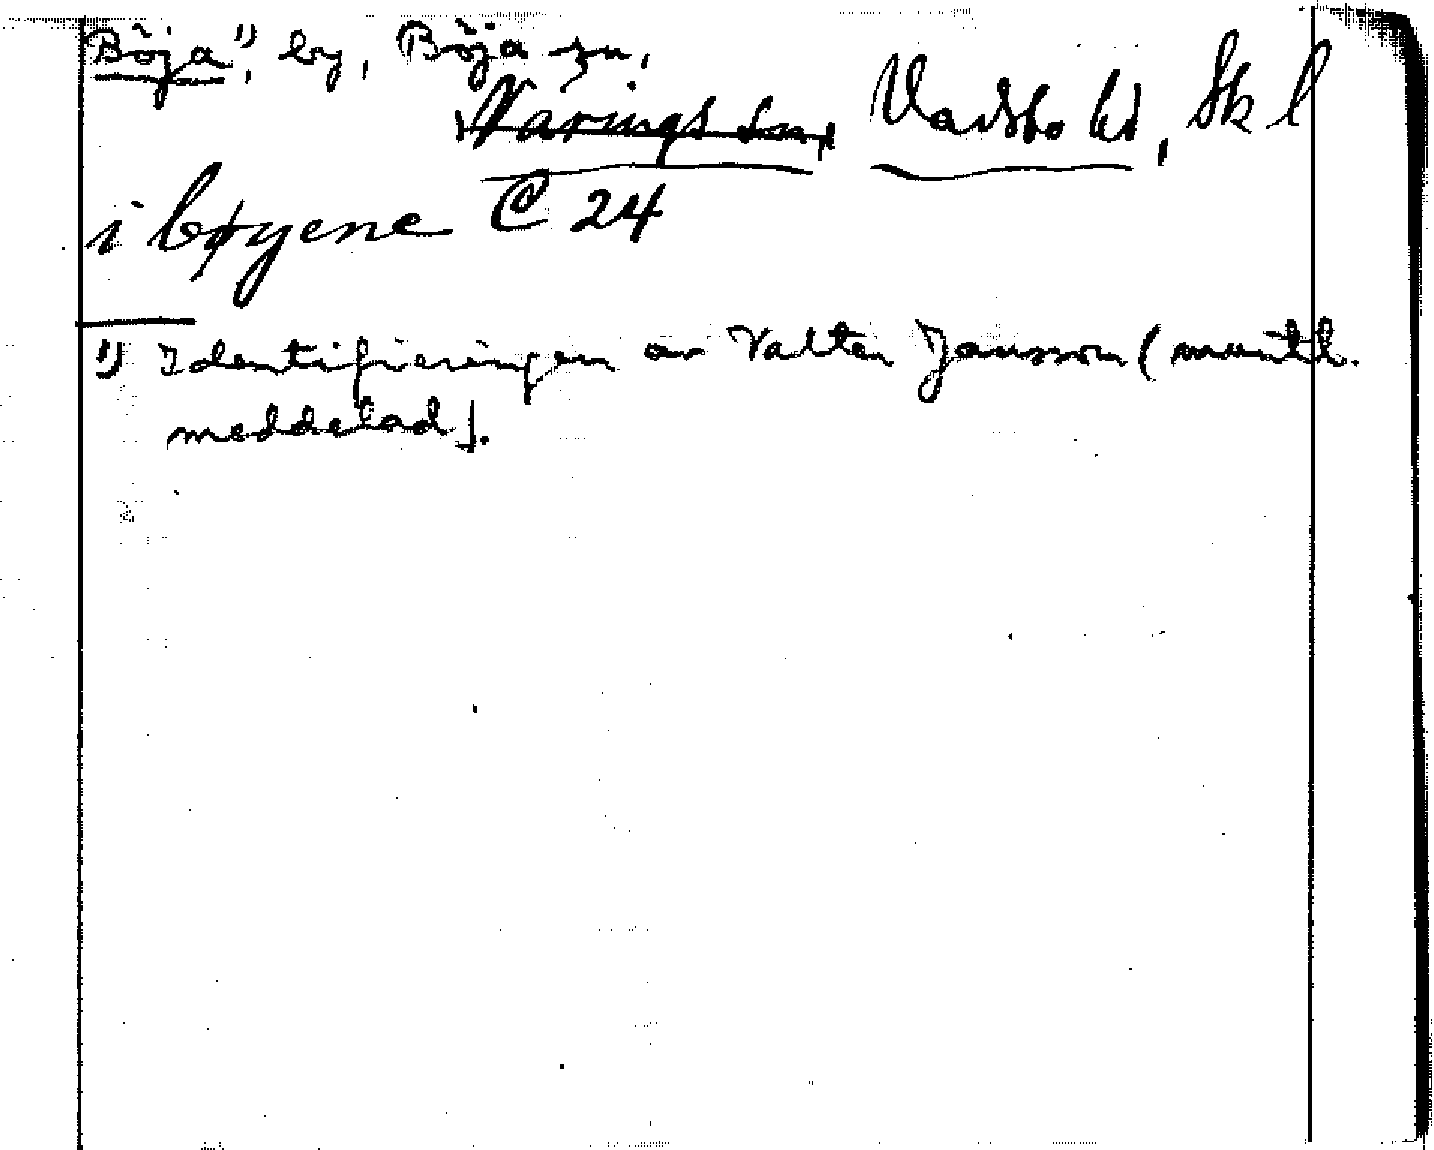 Böja ¹), by, Böja sn,
Värings sn, Vadsbo hd, Sk l
i bøyene C 24
1) Identifieringen av Valter Jansson (muntl.
meddelad).